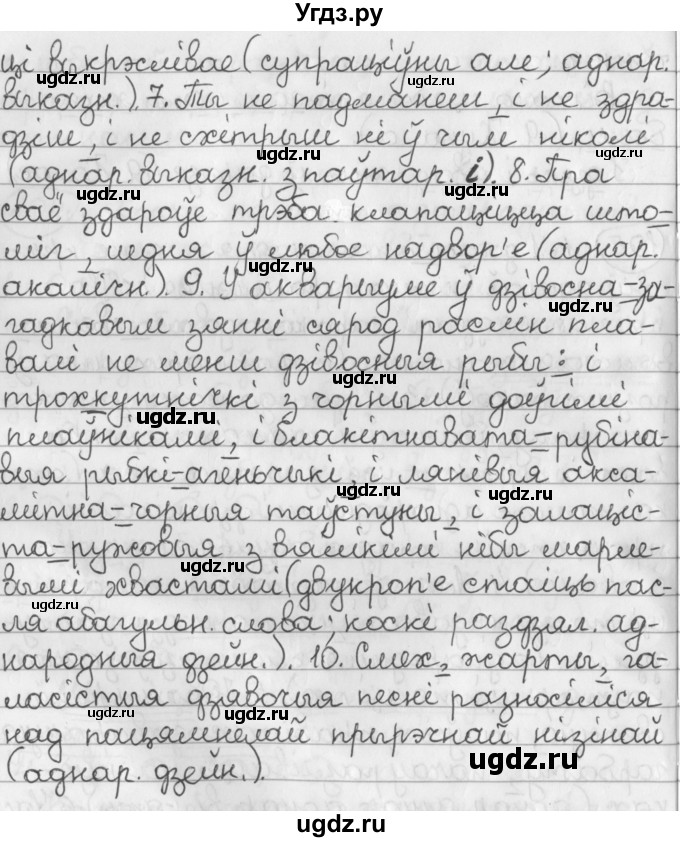 Угдз.ру
ці выкрэслівае (супраціўны але; аднар.
выказн.). 7. Ты не падманеш, і не здра-
дзіш, і не схітрыш ні ў чым ніколі
(аднар. выказн. з паўтар. і). 8. Пра
сваё здароўе трэба клапаціцца што-
міг, штодня ў любое надвор'е (аднар.
акалічн.). 9. У акварыуме ў дзівосна-за-
гадкавым ззянні сярод раслін пла-
валі не менш дзівосныя рыбы: і
трохкутнічкі з чорнымі доўгімі
плаўнікамі, і блакітнавата-рубіна-
выя рыбкі-агеньчыкі, і лянівыя акса-
мітна-чорныя таўстуны, і залаціс-
та-ружовыя з вялікімі нібы марле-
вымі хвастамі (двукроп'е стаіць пас-
ля абагульн. слова; коскі раздзял. ад-
народныя дзейн.). 10. Смех, жарты, га-
ласістыя дзявочыя песні разносіліся
над пацямнелай прырэчнай нізінай
(аднар. дзейн.).
ugdz.ru